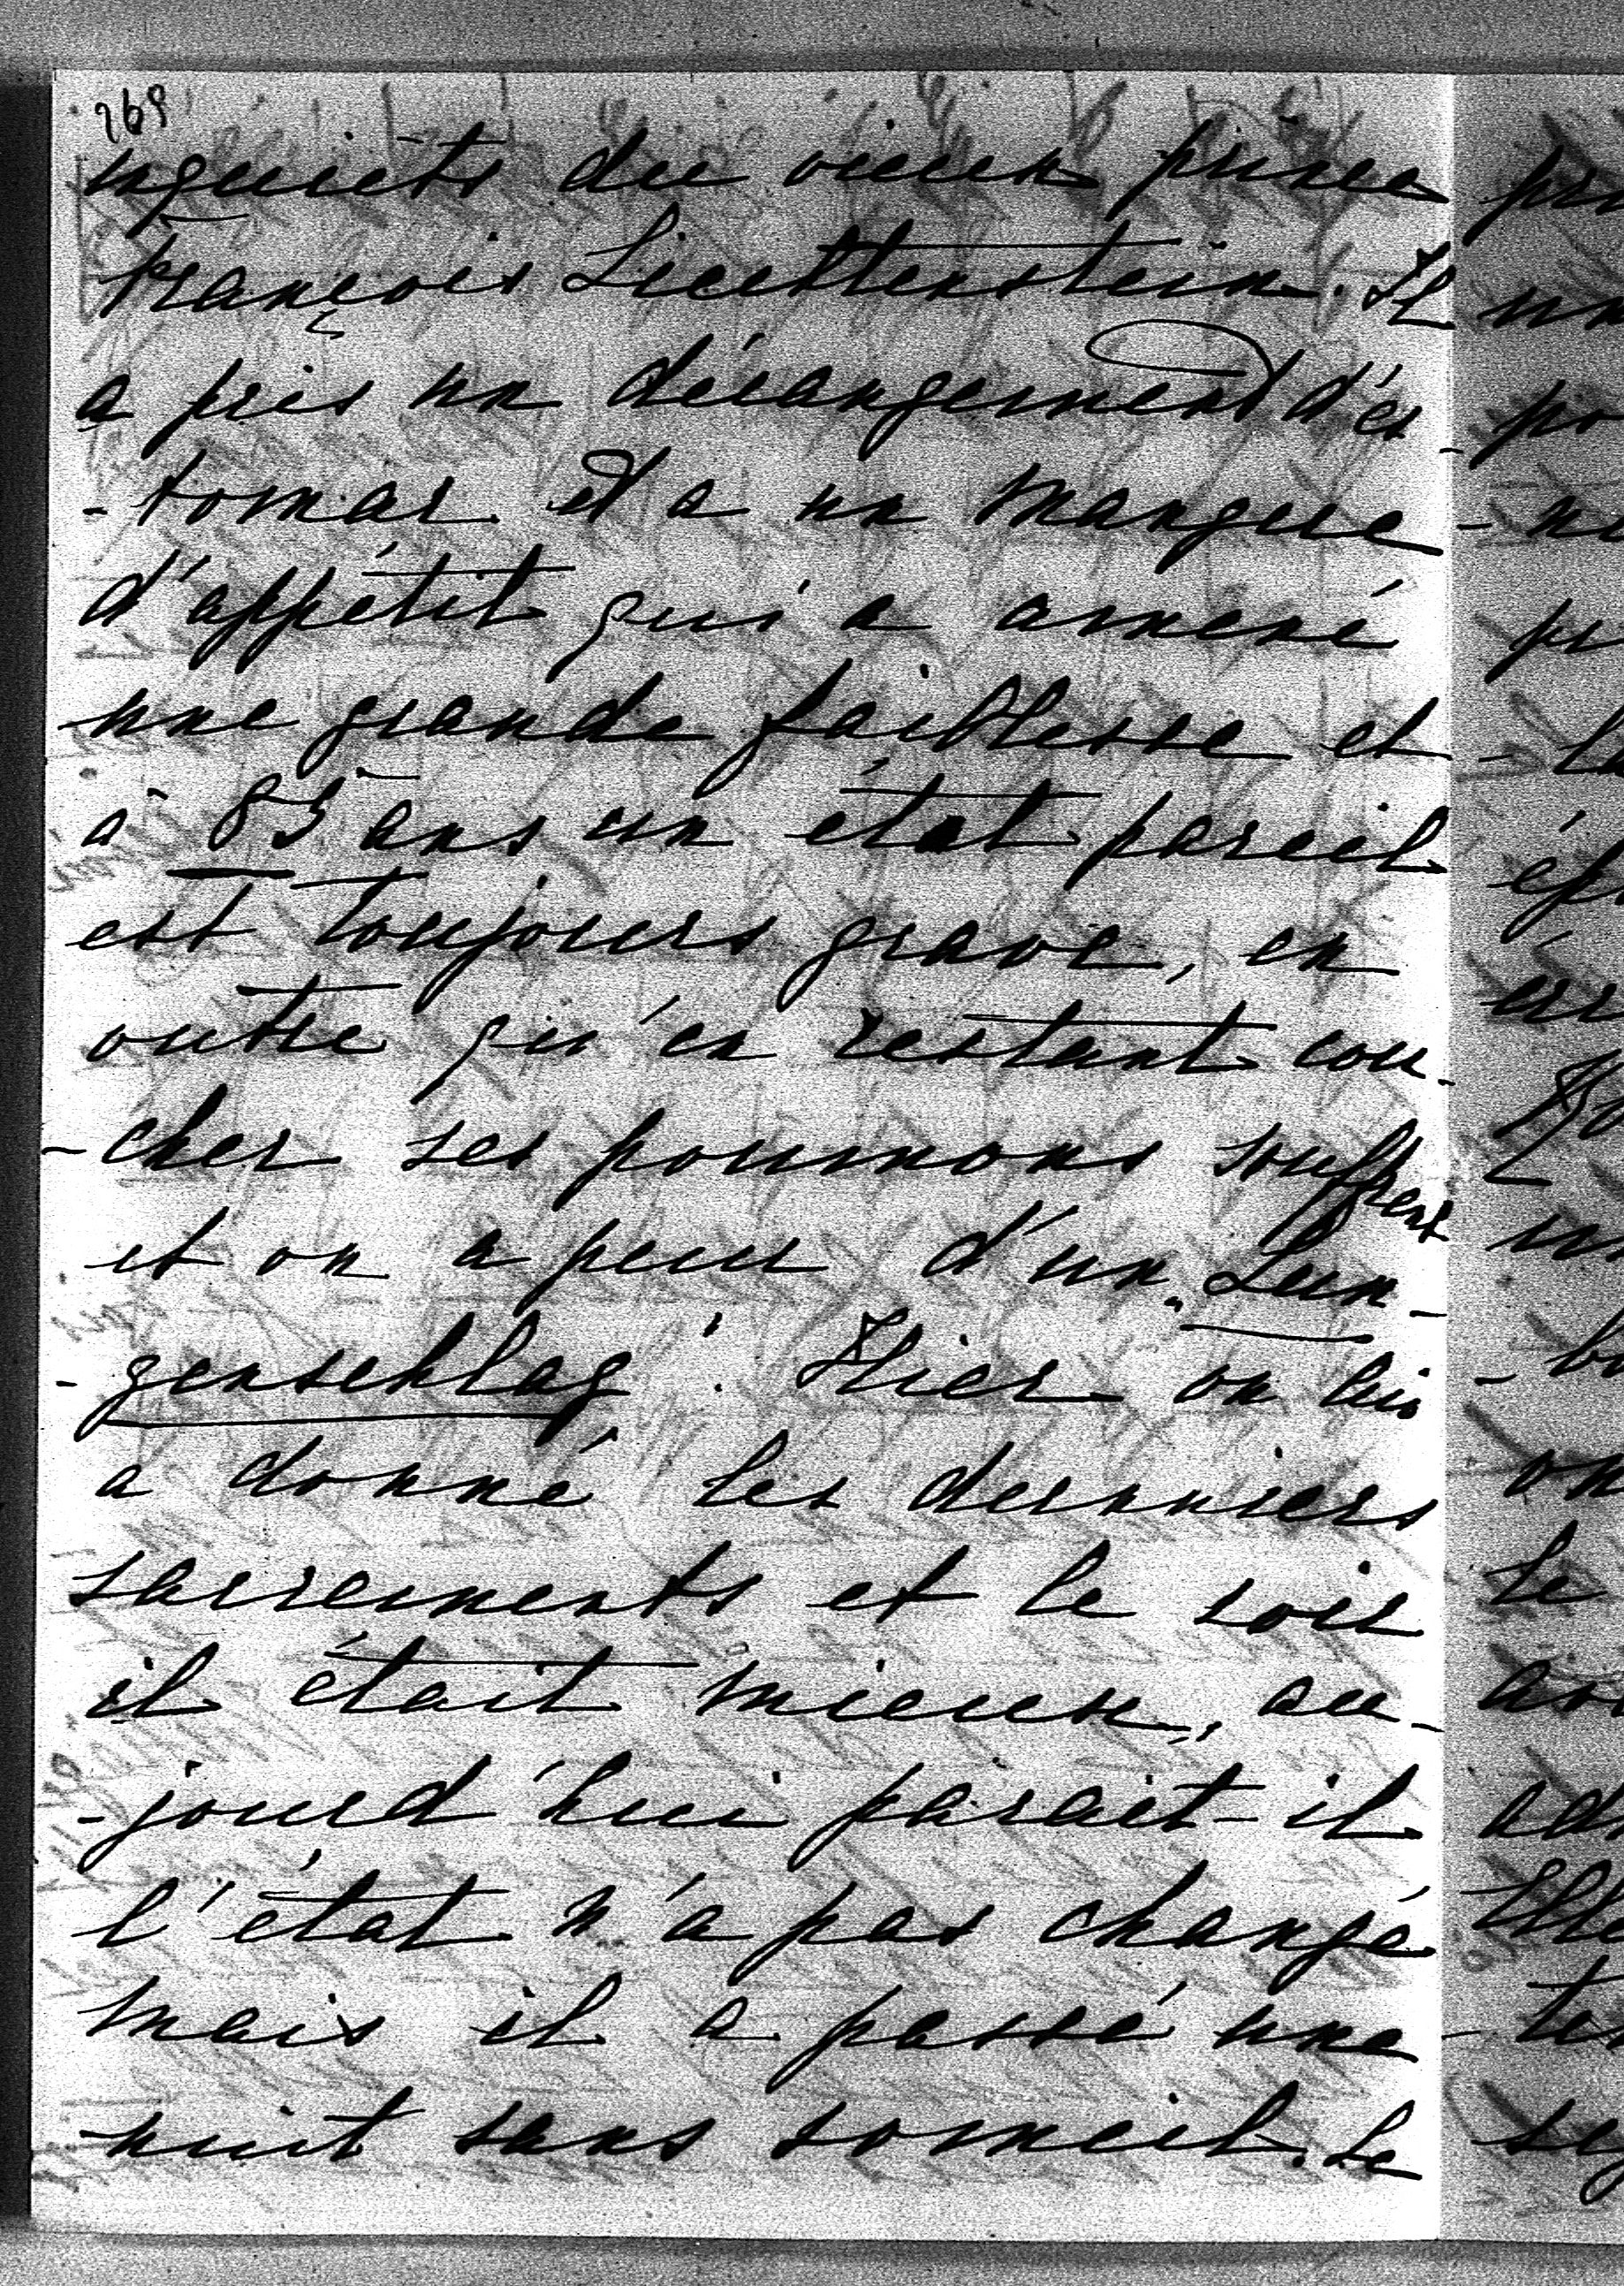 269
inquiets du vieux prince
François Liechtenstein. Il
a pris un dérangement d'es-
-tomac et a un manque
d'appétit qui a amené
une grande faiblesse et
à 85 ans un état pareil
est toujours grave, en
outre qu'en restant cou-
-cher ses poumons souffrent
et on a peur d'un „Lun-
-genschlag". Hier on lui
a donné les derniers
sacrements et le soir
il était mieux, au-
-jourd'hui parait-il
l'état n'a pas changé
mais il a passé une
nuit sans someil. Le